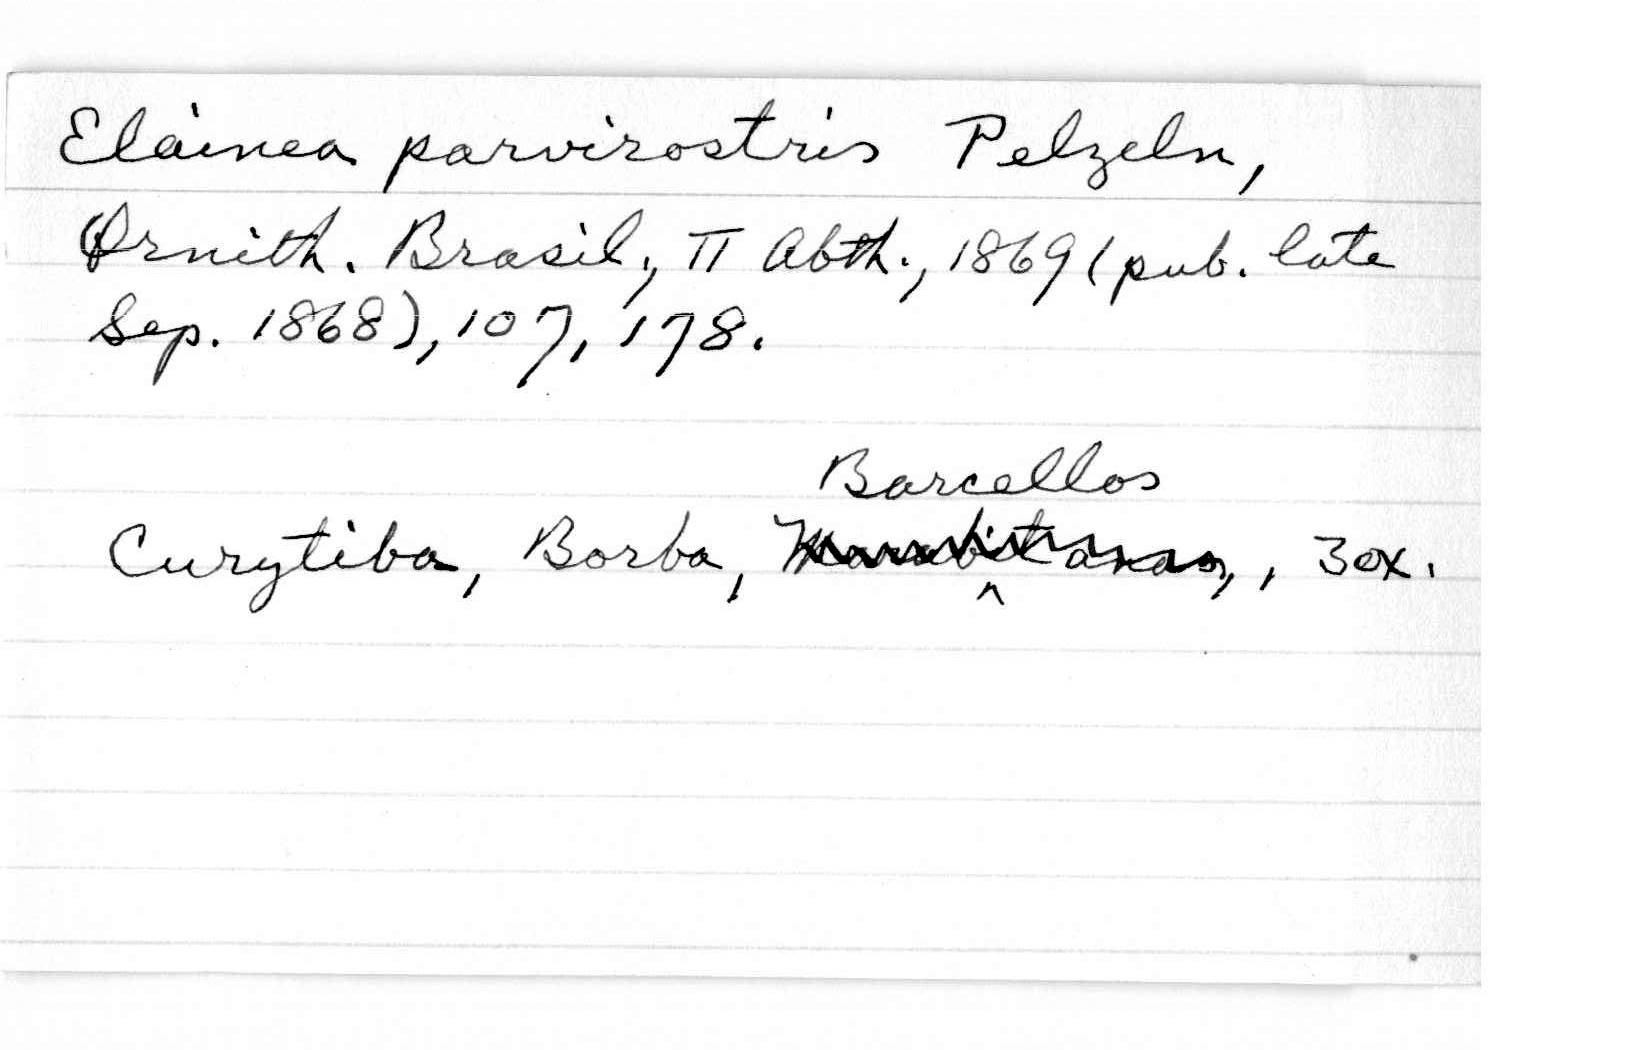 Elainea parvirostris Pelzeln,
Ornith. Brasil., II Abth., 1869 (pub. late
Sep. 1868), 107, 178.
Barcellos
Curytiba, Borba, Marabitanas, , 3ex.